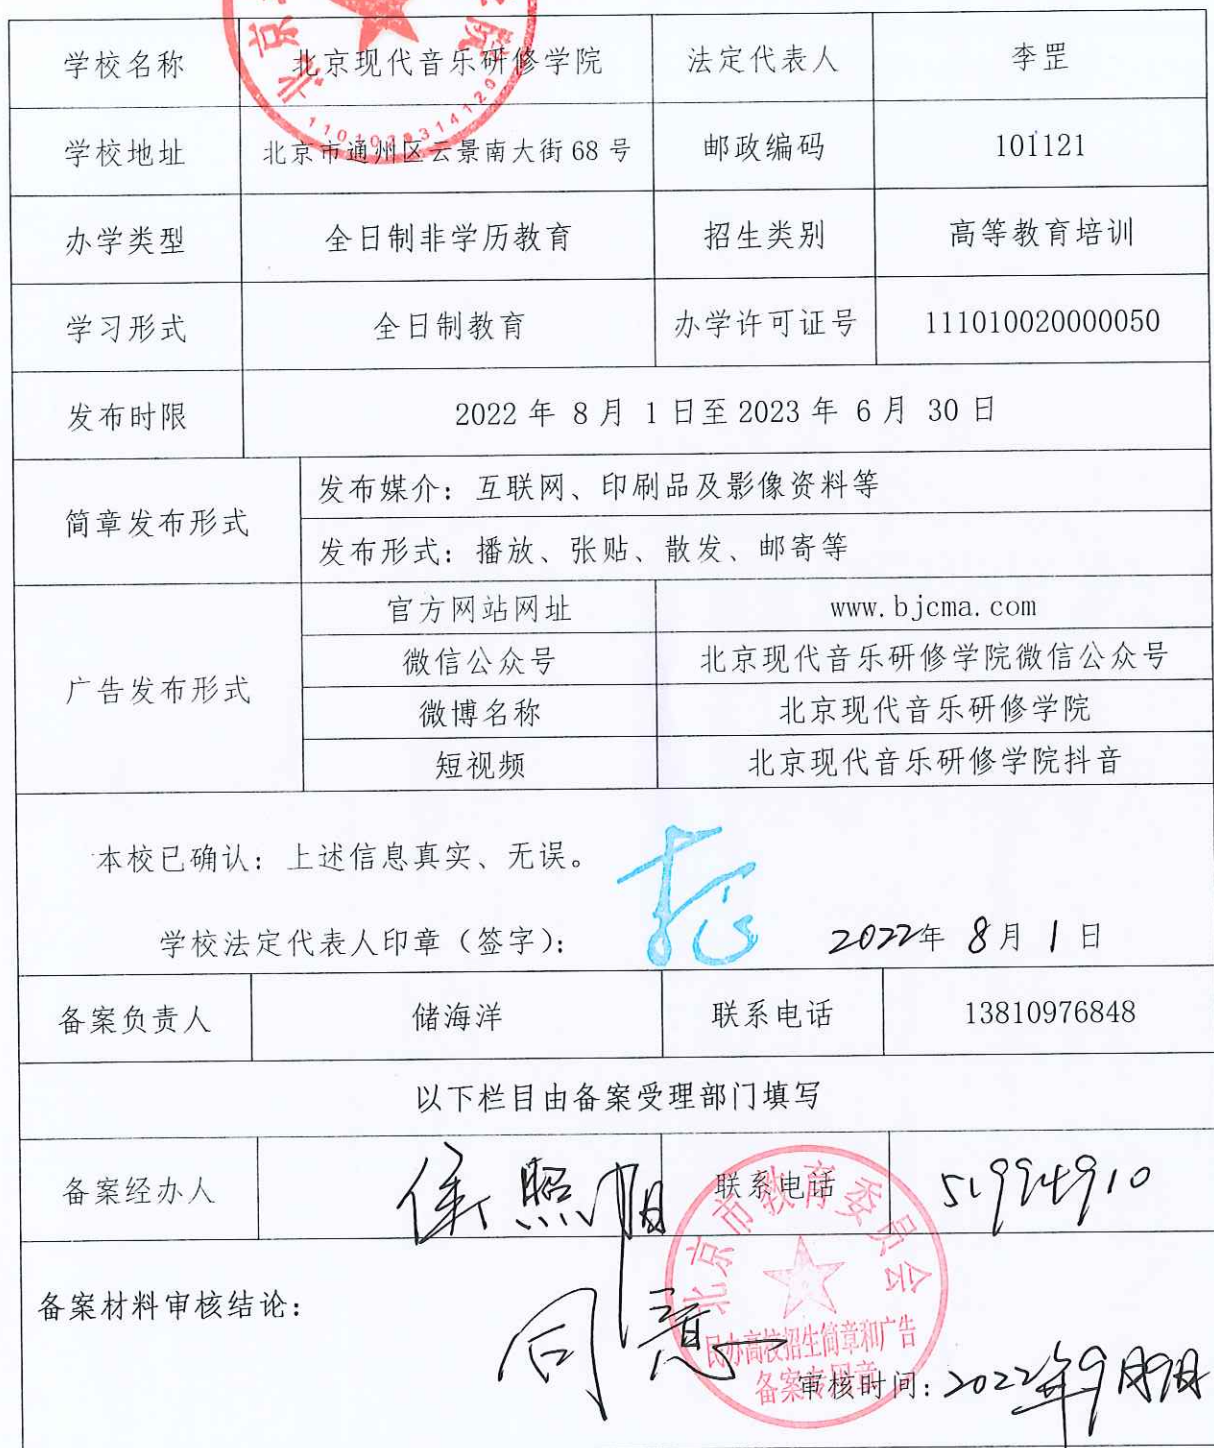 学校名称 北京现代音乐研修学院 法定代表人 李罡
学校地址 北京市通州区云景南大街68号 邮政编码 101121
办学类型 全日制非学历教育 招生类别 高等教育培训
学习形式 全日制教育 办学许可证号 111010020000050
发布时限 2022年 8月 1日至2023年 6月 30日
简章发布形式
发布媒介：互联网、印刷品及影像资料等
发布形式：播放、张贴、散发、邮寄等
广告发布形式
官方网站网址 www.bjcma.com
微信公众号 北京现代音乐研修学院微信公众号
微博名称 北京现代音乐研修学院
短视频 北京现代音乐研修学院抖音
本校已确认：上述信息真实、无误。
学校法定代表人印章（签字）： 2022年 8月 1日
备案负责人 储海洋 联系电话 13810976848
以下栏目由备案受理部门填写
备案经办人 联系电话 51994910
北京市教育委员会
备案材料审核结论：
同意
民办高校招生简章和广告
备案专用章
审核时间：2022年9月9日